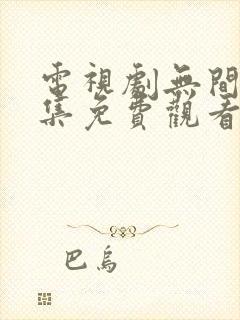 電視劇無間
集免費觀看
巴烏